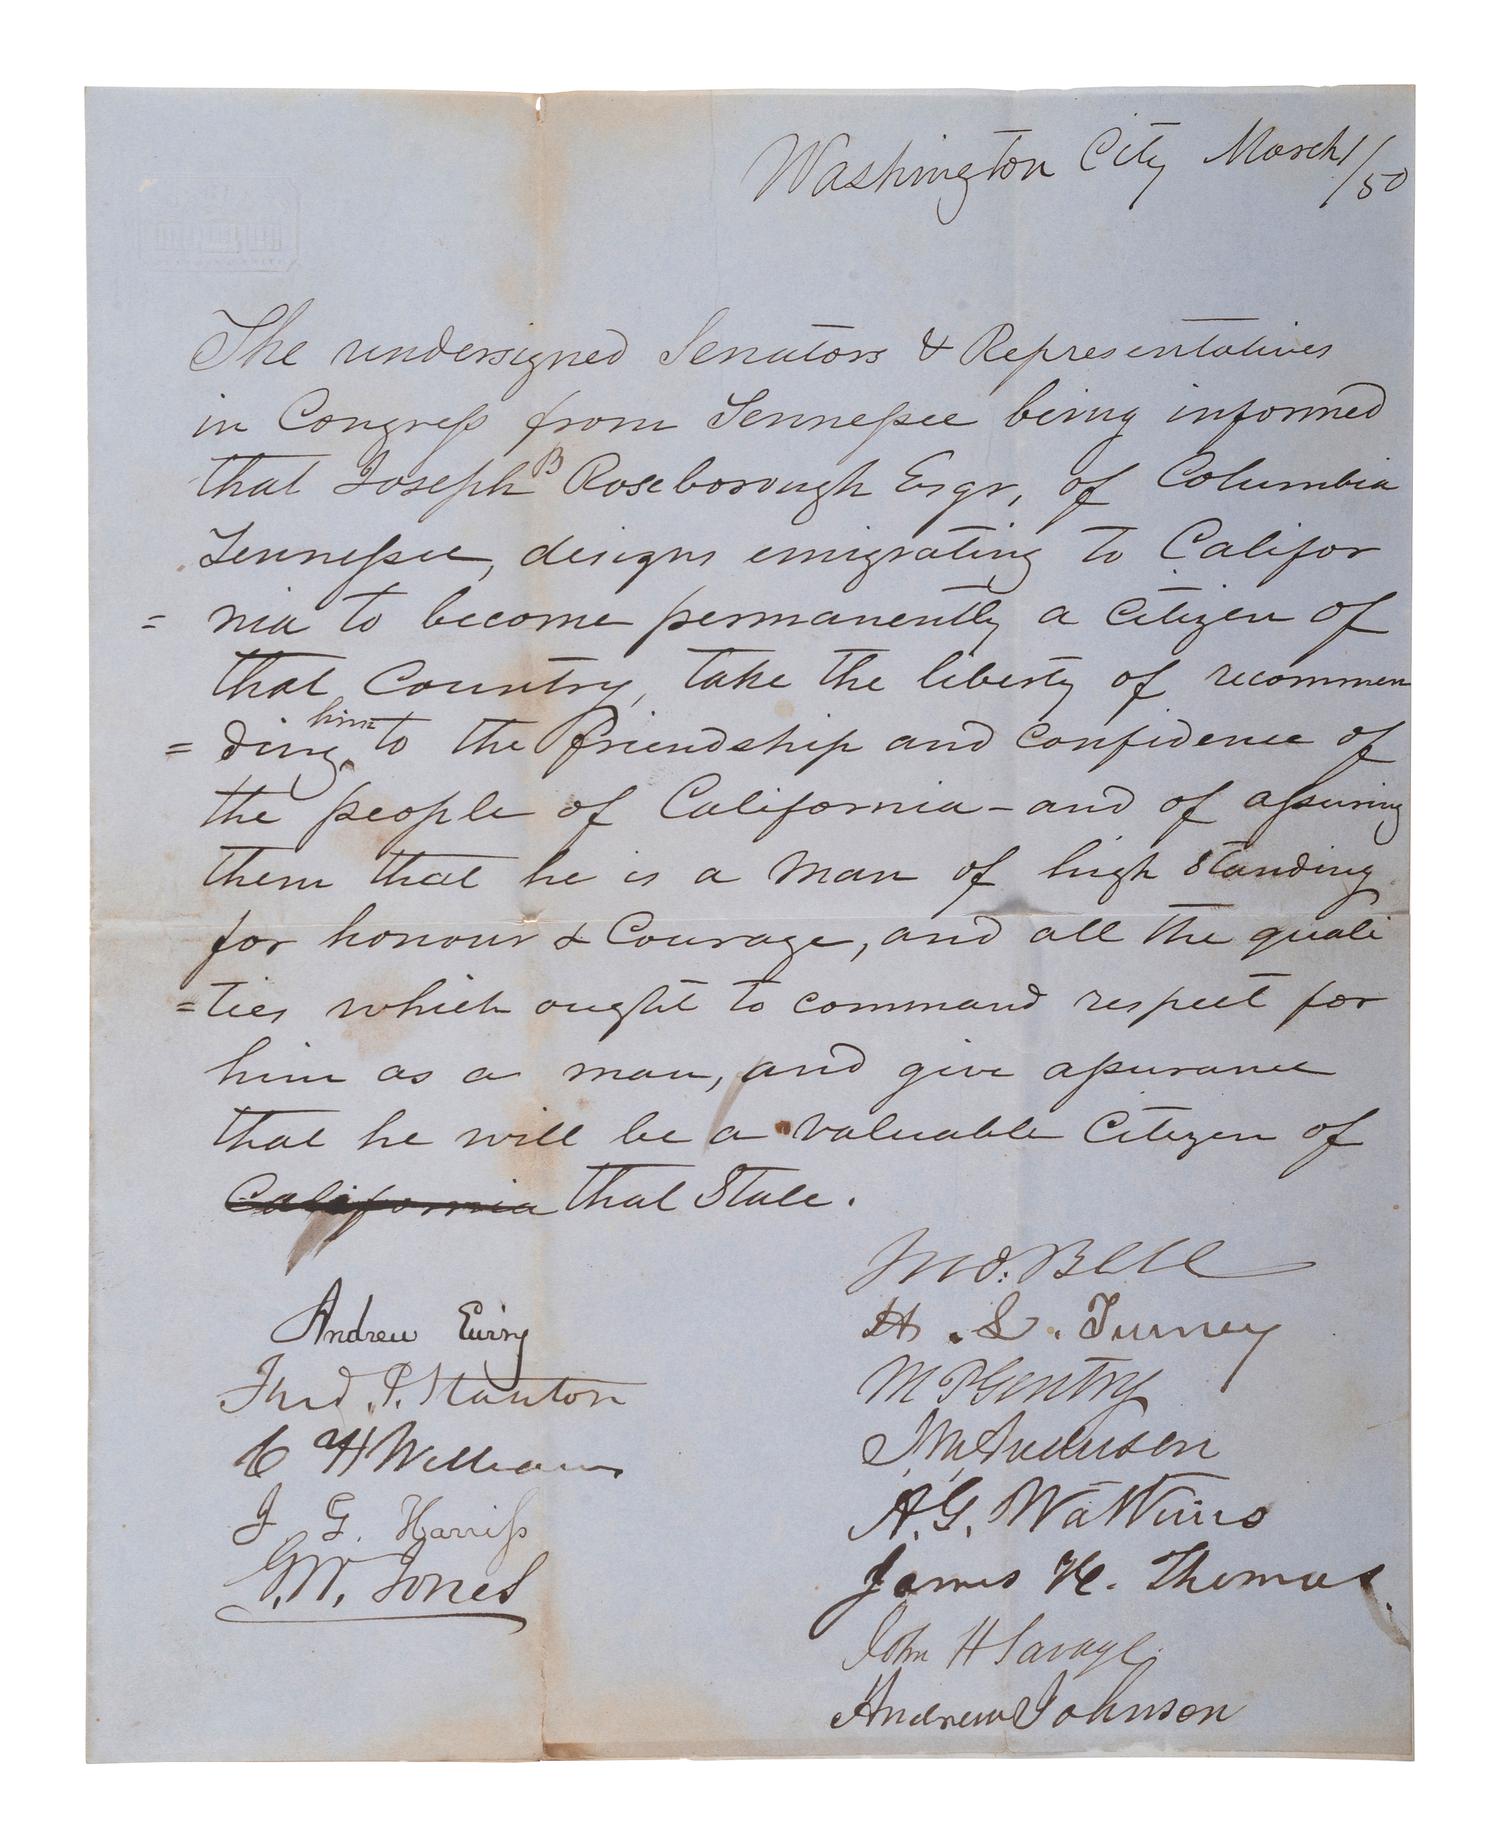 Washington City March 1/50
The undersigned Senators & Representatives
in Congreſs from Tenneſsee being informed
that Joseph B Roseborough Esqr, of Columbia
Tenneſsee, designs emigrating to Califor
= nia to become permanently a citizen of
that Country, take the liberty of recommen
= ding him to the friendship and confidence of
the people of California - and of aſsuring
them that he is a man of high standing
for honour & Courage, and all the quali
=ties which ought to command respect for
him as a man, and give aſsurance
that he will be a valuable Citizen of
California that State.
Jno. Bell
H. L. Turney
M P Gentry
J M Anderson
A. G. Watkins
James H. Thomas
John H Savage
Andrew Johnson
Andrew Ewing
Fred P. Stanton
C H Williams
I G. Harriſs
G. W. Jones